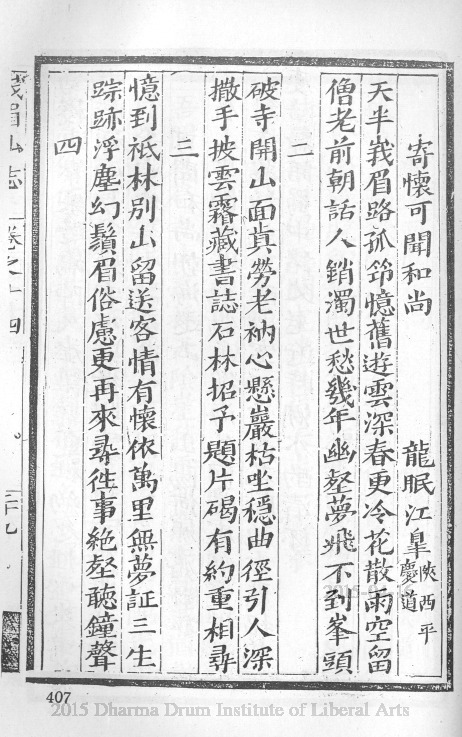 寄懷可聞和尚
龍眠江皐陝西平慶道
天半峩眉路孤筇憶舊遊雲深春更冷花散雨空留
僧老前朝話人銷濁世愁幾年幽壑夢飛不到峯頭
二
破寺開山面真勞老衲心懸巖枯坐穩曲徑引人深
撒手披雲霧藏書誌石林招予題片碣有約重相尋
三
憶到祇林別山留送客情有懷依萬里無夢証三生
踪跡浮塵幻鬚眉俗慮更再來尋往事絶壑聽鐘聲
四
峩眉山志
卷之十四
三十九
407
2015 Dharma Drum Institute of Liberal Arts